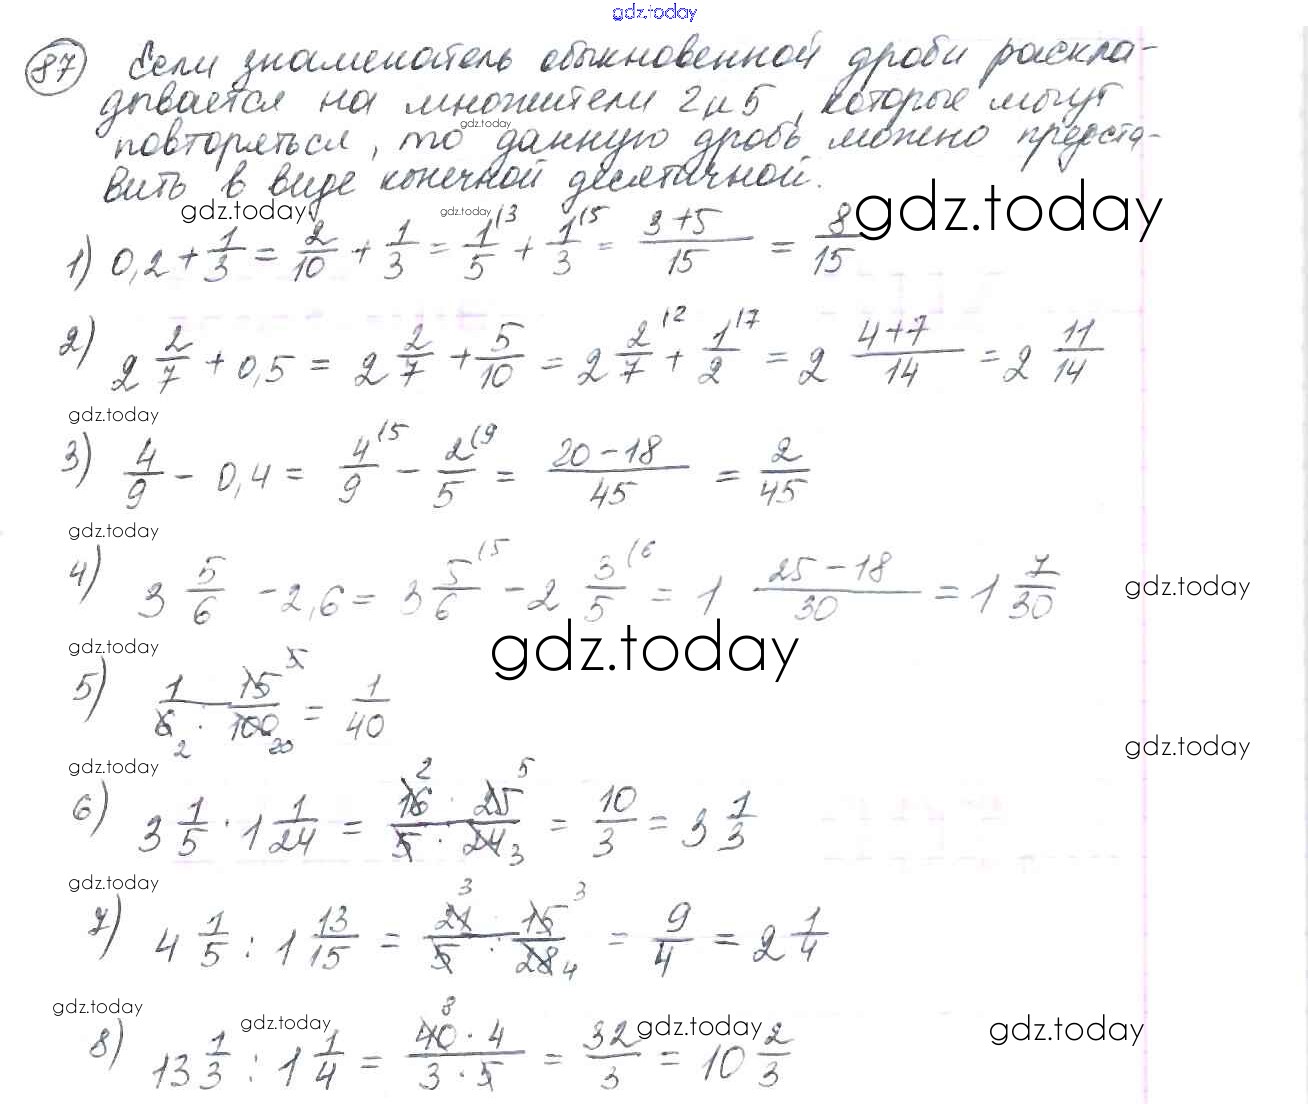 gdz.today
87 Если знаменатель обыкновенной дроби раскла-
дывается на множители 2 и 5, которые могут
gdz.today
повторяться, то данную дробь можно предста-
вить в виде конечной десятичной.
gdz.today gdz.today gdz.today
1) 0,2 + 1/3 = 2/10 + 1/3 = 1/5 (3 + 1/3 (5 = (3+5)/15 = 8/15
2) 2 2/7 + 0,5 = 2 2/7 + 5/10 = 2 2/7 (2 + 1/2 (7 = 2 (4+7)/14 = 2 11/14
gdz.today
3) 4/9 - 0,4 = 4/9 (5 - 2/5 (9 = (20-18)/45 = 2/45
gdz.today
4) 3 5/6 - 2,6 = 3 5/6 (5 - 2 3/5 (6 = 1 (25-18)/30 = 1 7/30
gdz.today
gdz.today
gdz.today
5) 1/6 2 · 15/100 5 20 = 1/40
gdz.today
gdz.today
6) 3 1/5 · 1 1/24 = (16 · 25)/(5 · 24) 2 5 3 = 10/3 = 3 1/3
gdz.today
7) 4 1/5 : 1 13/15 = 21/5 · 15/28 3 3 4 = 9/4 = 2 1/4
gdz.today gdz.today gdz.today gdz.today
8) 13 1/3 : 1 1/4 = (40 · 4)/(3 · 5) 8 = 32/3 = 10 2/3